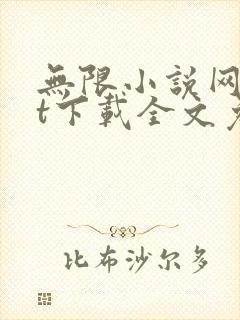 無限小説网
t下載全文
比布沙尔多